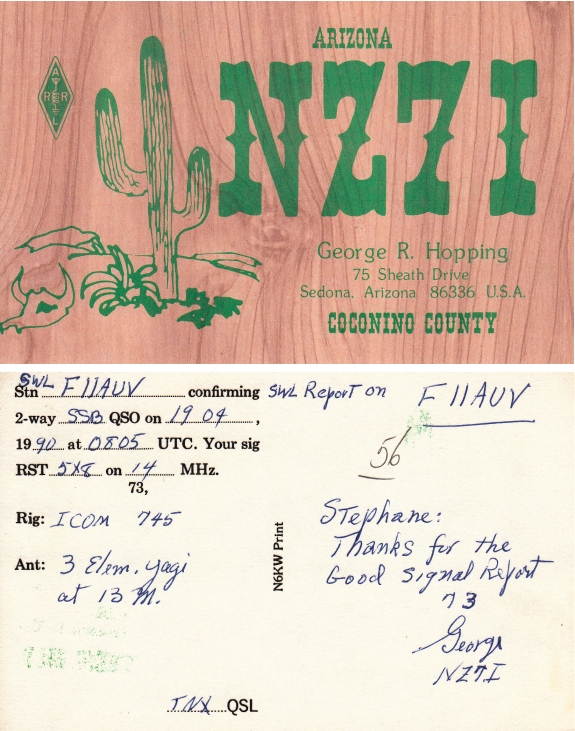 ARIZONA
A
R R
L
NZ7I
George R. Hopping
75 Sheath Drive
Sedona, Arizona 86336 U.S.A.
COCONINO COUNTY
SWL
Stn F11AUV confirming
2-way SSB QSO on 19 04,
1990 at 0805 UTC. Your sig
RST 5X8 on 14 MHz.
73,
Rig: ICOM 745
Ant: 3 Elem. yagi
at 13 M.
TNX QSL
N6KW Print
SWL Report on F11AUV
56
Stephane:
Thanks for the
Good Signal Report
73
George
NZ7I